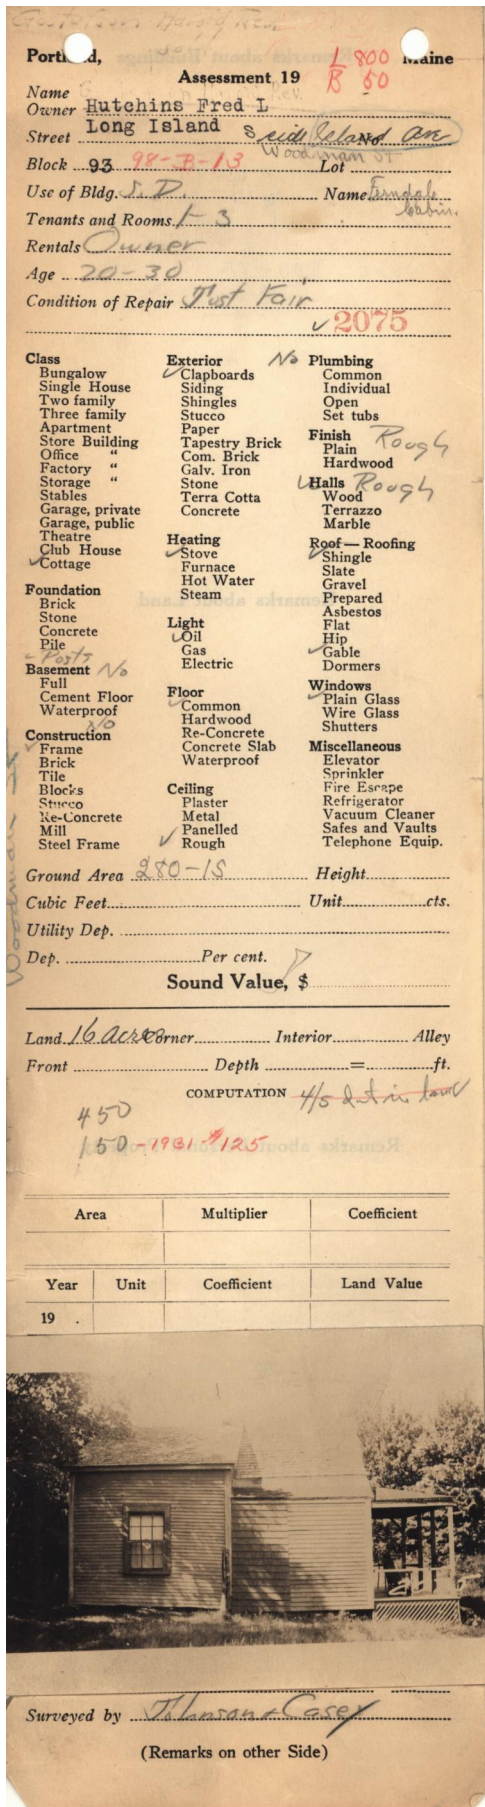 Portland, Maine
L 800
Assessment 19 B 50
Name
Owner Hutchins Fred L
Street Long Island S side Island Ave No.
Woodman St
Block 93 98-B-13 Lot
Use of Bldg. S. D. Name Ferndale Cabin.
Tenants and Rooms 1-3
Rentals Owner
Age 20-30
Condition of Repair Just Fair
✓ 2075
Class
Bungalow
Single House
Two family
Three family
Apartment
Store Building
Office "
Factory "
Storage "
Stables
Garage, private
Garage, public
Theatre
Club House
✓ Cottage
Foundation
Brick
Stone
Concrete
Pile
- Posts
Basement No
Full
Cement Floor
Waterproof
No
Construction
✓ Frame
Brick
Tile
Blocks
Stucco
Re-Concrete
Mill
Steel Frame
Exterior
✓ Clapboards
Siding
Shingles
Stucco
Paper
Tapestry Brick
Com. Brick
Galv. Iron
Stone
Terra Cotta
Concrete
Heating
✓ Stove
Furnace
Hot Water
Steam
Light
✓ Oil
Gas
Electric
Floor
✓ Common
Hardwood
Re-Concrete
Concrete Slab
Waterproof
Ceiling
Plaster
Metal
Panelled
✓ Rough
No Plumbing
Common
Individual
Open
Set tubs
Finish Rough
Plain
Hardwood
✓ Halls Rough
Wood
Terrazzo
Marble
Roof — Roofing
✓ Shingle
Slate
Gravel
Prepared
Asbestos
Flat
Hip
✓ Gable
Dormers
Windows
✓ Plain Glass
Wire Glass
Shutters
Miscellaneous
Elevator
Sprinkler
Fire Escape
Refrigerator
Vacuum Cleaner
Safes and Vaults
Telephone Equip.
Woodman St
Ground Area 280-1S Height
Cubic Feet Unit cts.
Utility Dep.
Dep. Per cent.
Sound Value, $
Land 16 acre Corner Interior Alley
Front Depth = ft.
COMPUTATION 4/5 Int in land
450
150-1931-$125
Area Multiplier Coefficient
Year Unit Coefficient Land Value
19 .
Surveyed by Johnson & Casey
(Remarks on other Side)